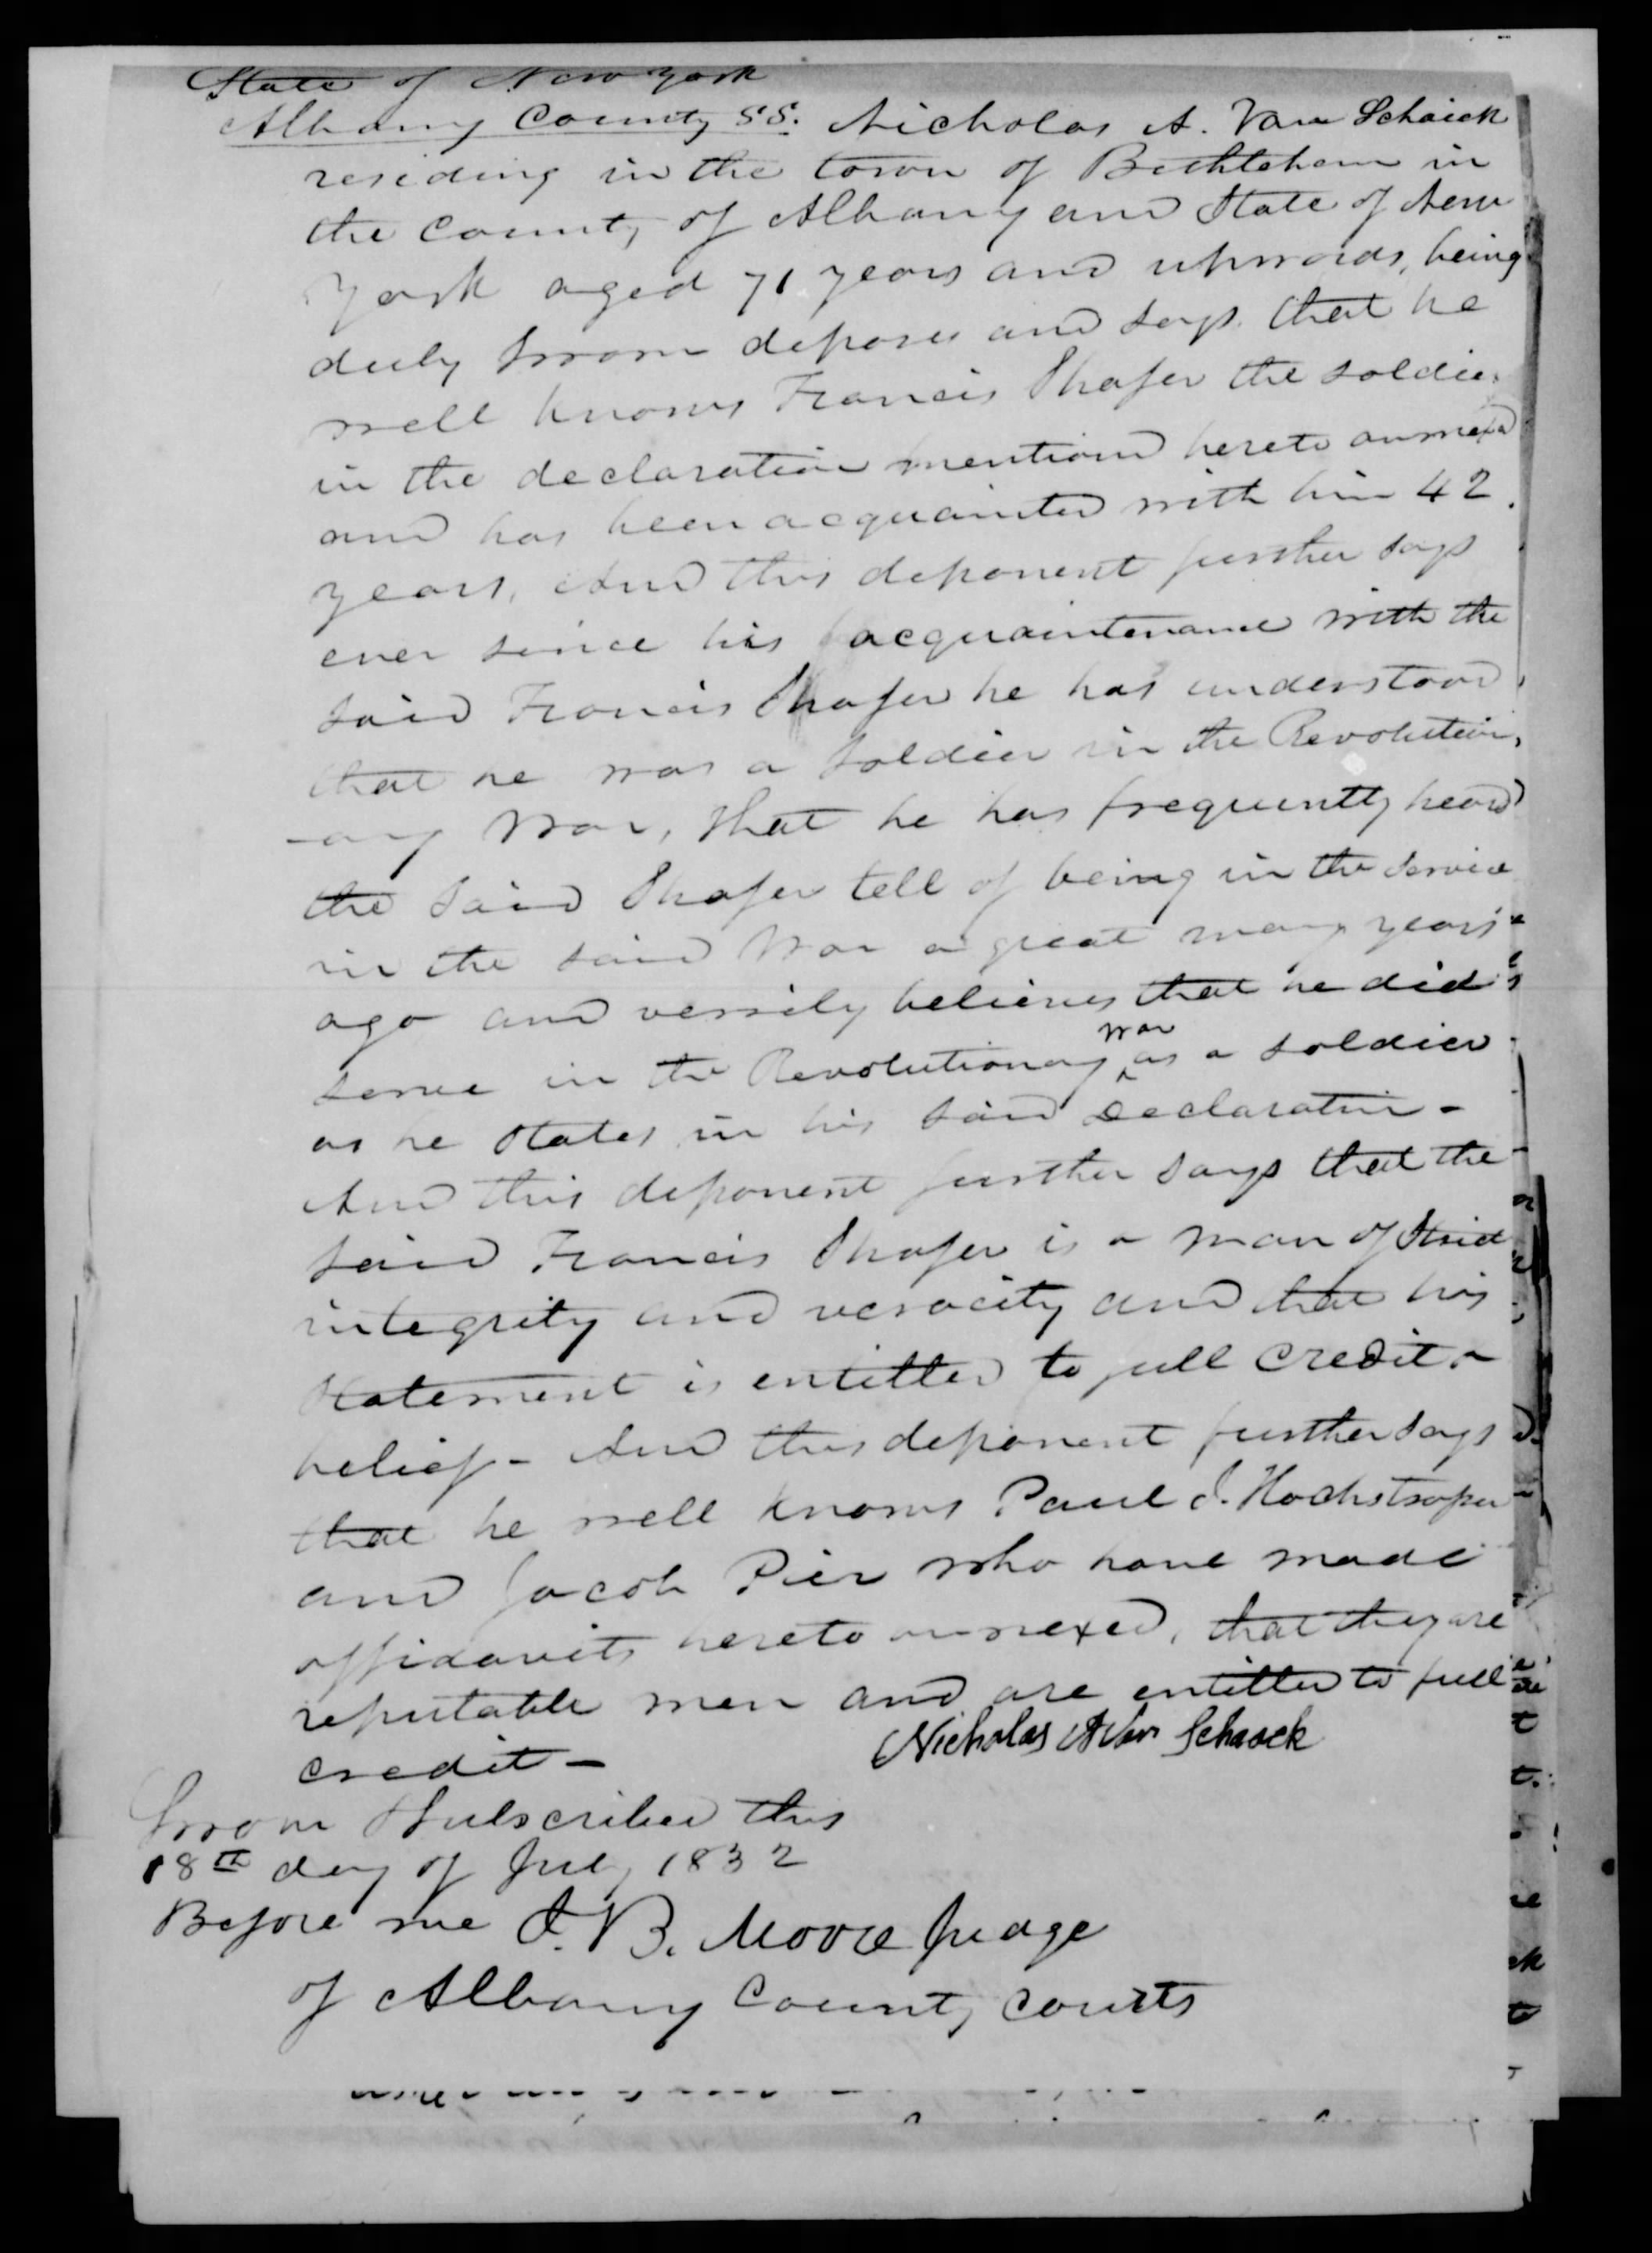 State of New York
Albany County SS. Nicholas A. Van Schaick
residing in the town of Bethlehem in
the County of Albany and State of New
York aged 71 years and upwards, being
duly sworn deposes and says that he
well knows Francis Shafer the soldier
in the declaration mentiond hereto annexed
and has been acquainted with him 42
years, And this deponent further says
ever since his acquaintenance with the
said Francis Shafer he has understood
that he was a soldier in the Revolution,
-ary War, that he has frequently heard
the said Shafer tell of being in the service
in the said War a great many years
ago and verrily believes that he did
serve in the Revolutionary war as a soldier
as he states in his said Declaration -
And this deponent further says that the
said Francis Shafer is a man of Strict
integrity and veracity and that his
statement is entitled to full credit &
belief - And this deponent further says
that he well knows Paul J. Hochstraper
and Jacob Pier who have made
affidavits hereto annexed, that they are
reputable men and are entitled to full
credit -
Nicholas A Van Schaack
Sworn & Subscribed this
18th day of July 1832
Before me J. B. Moore Judge
of Albany County Courts